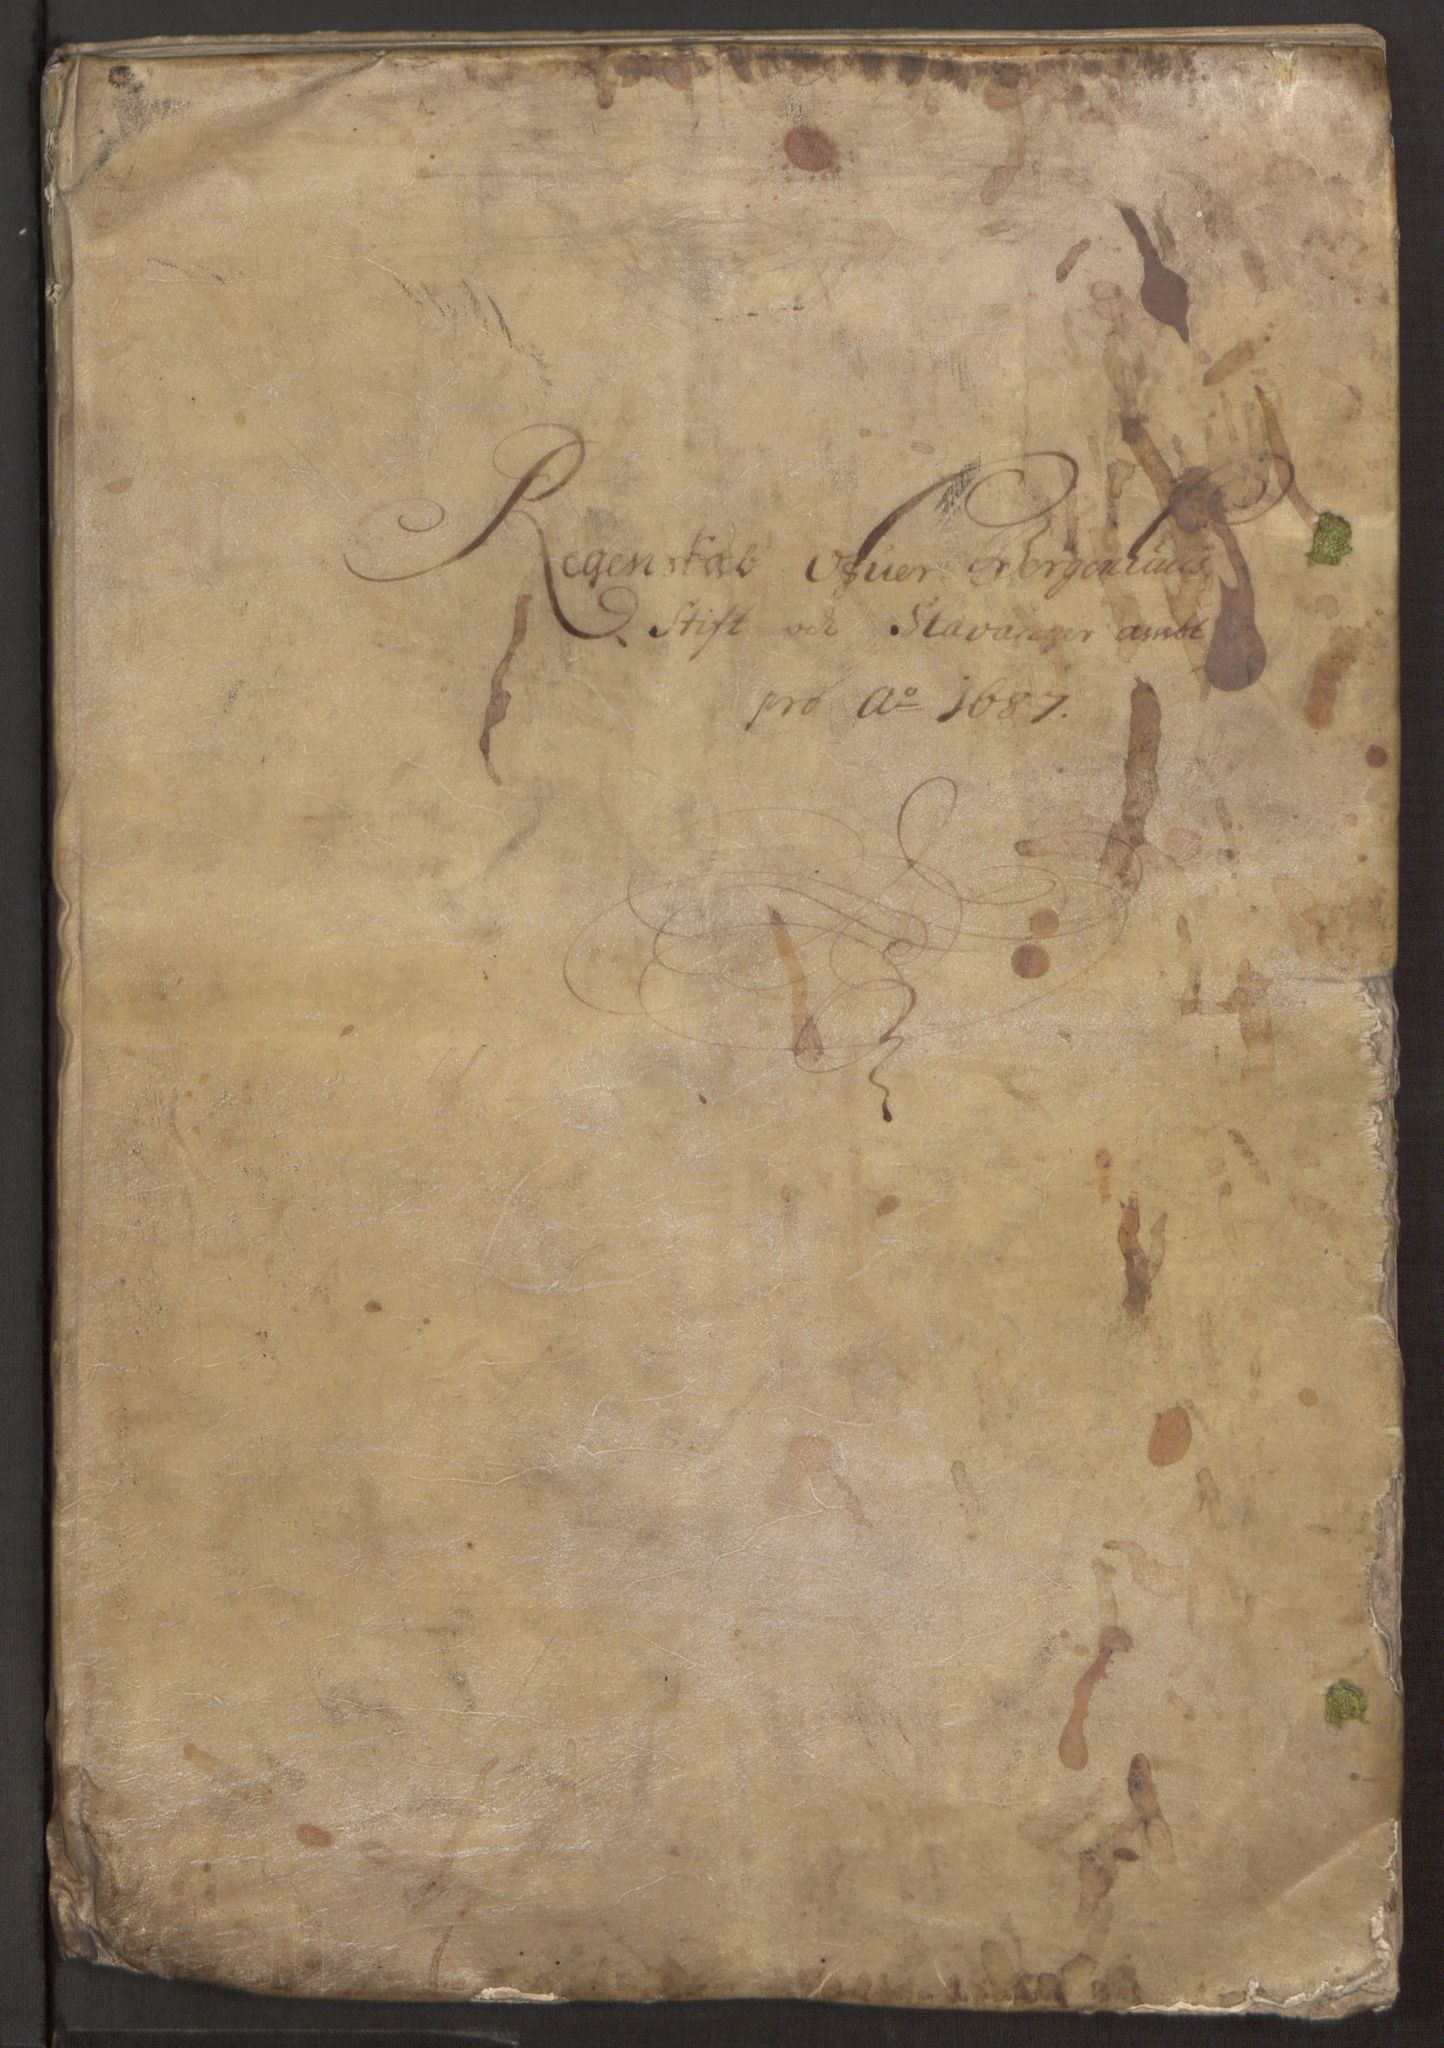 Regenskab Ofuer Bergenhuus
Stift och Stavanger ambt
pro Ao 1687.